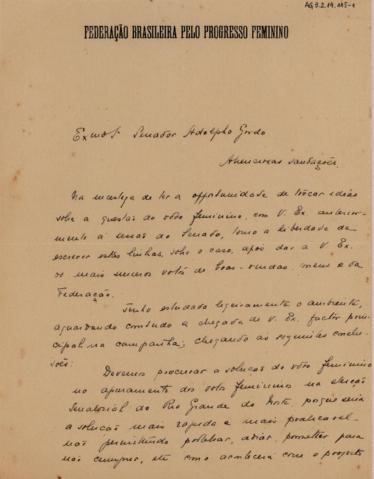 AG 3.2.19.115-1
FEDERAÇÃO BRASILEIRA PELO PROGRESSO FEMININO
Exmo Sr Senador Adolpho Gordo
Attenciosas saudações.
Na incerteza de ter a opportunidade de trocar idéas
sobre a questão do vôto feminino, com V. Ex. anterior-
mente á sessão do Senado, tomo a liberdade de
escrever estas linhas, sobre o caso, após dar a V. Ex.
os mais sinceros votos de bôas-vindas, meus e da
Federação.
Tenho estudado ligeiramente o ambiente,
aguardando comtudo a chegada de V. Ex. factor prin-
cipal na campanha; chegando ás seguintes conclu-
sões:
Devemos procurar a solução do vôto feminino
no apuramento dos votos femininos na eleição
Senatorial do Rio Grande do Norte, porque seria
a solução mais rapida e mais praticavel
não permittindo protelar, adiar, prometter para
não cumprir, etc como acontecerá com o projecto